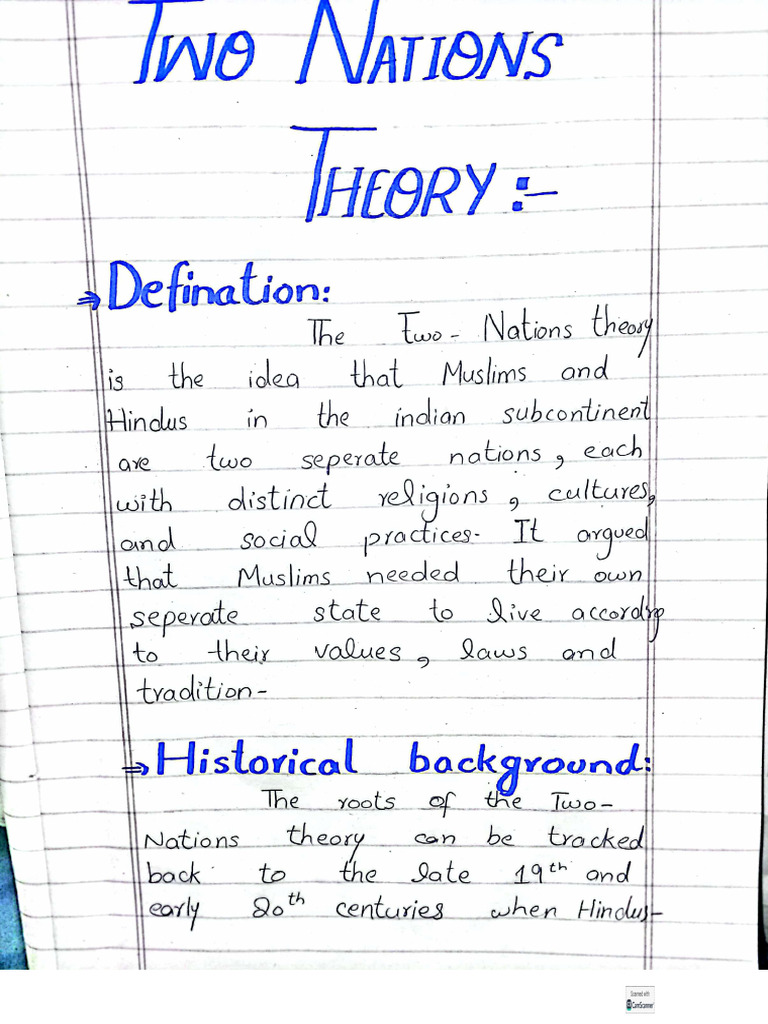 TWO NATIONS
THEORY :-
⇒ Defination:
The Two- Nations theory
is the idea that Muslims and
Hindus in the indian subcontinent
are two seperate nations, each
with distinct religions, cultures,
and social practices. It argued
that Muslims needed their own
seperate state to live according
to their values, laws and
tradition-
⇒ Historical background:
The roots of the Two-
Nations theory can be tracked
back to the late 19th and
early 20th centuries when Hindus-
Scanned with
CamScanner